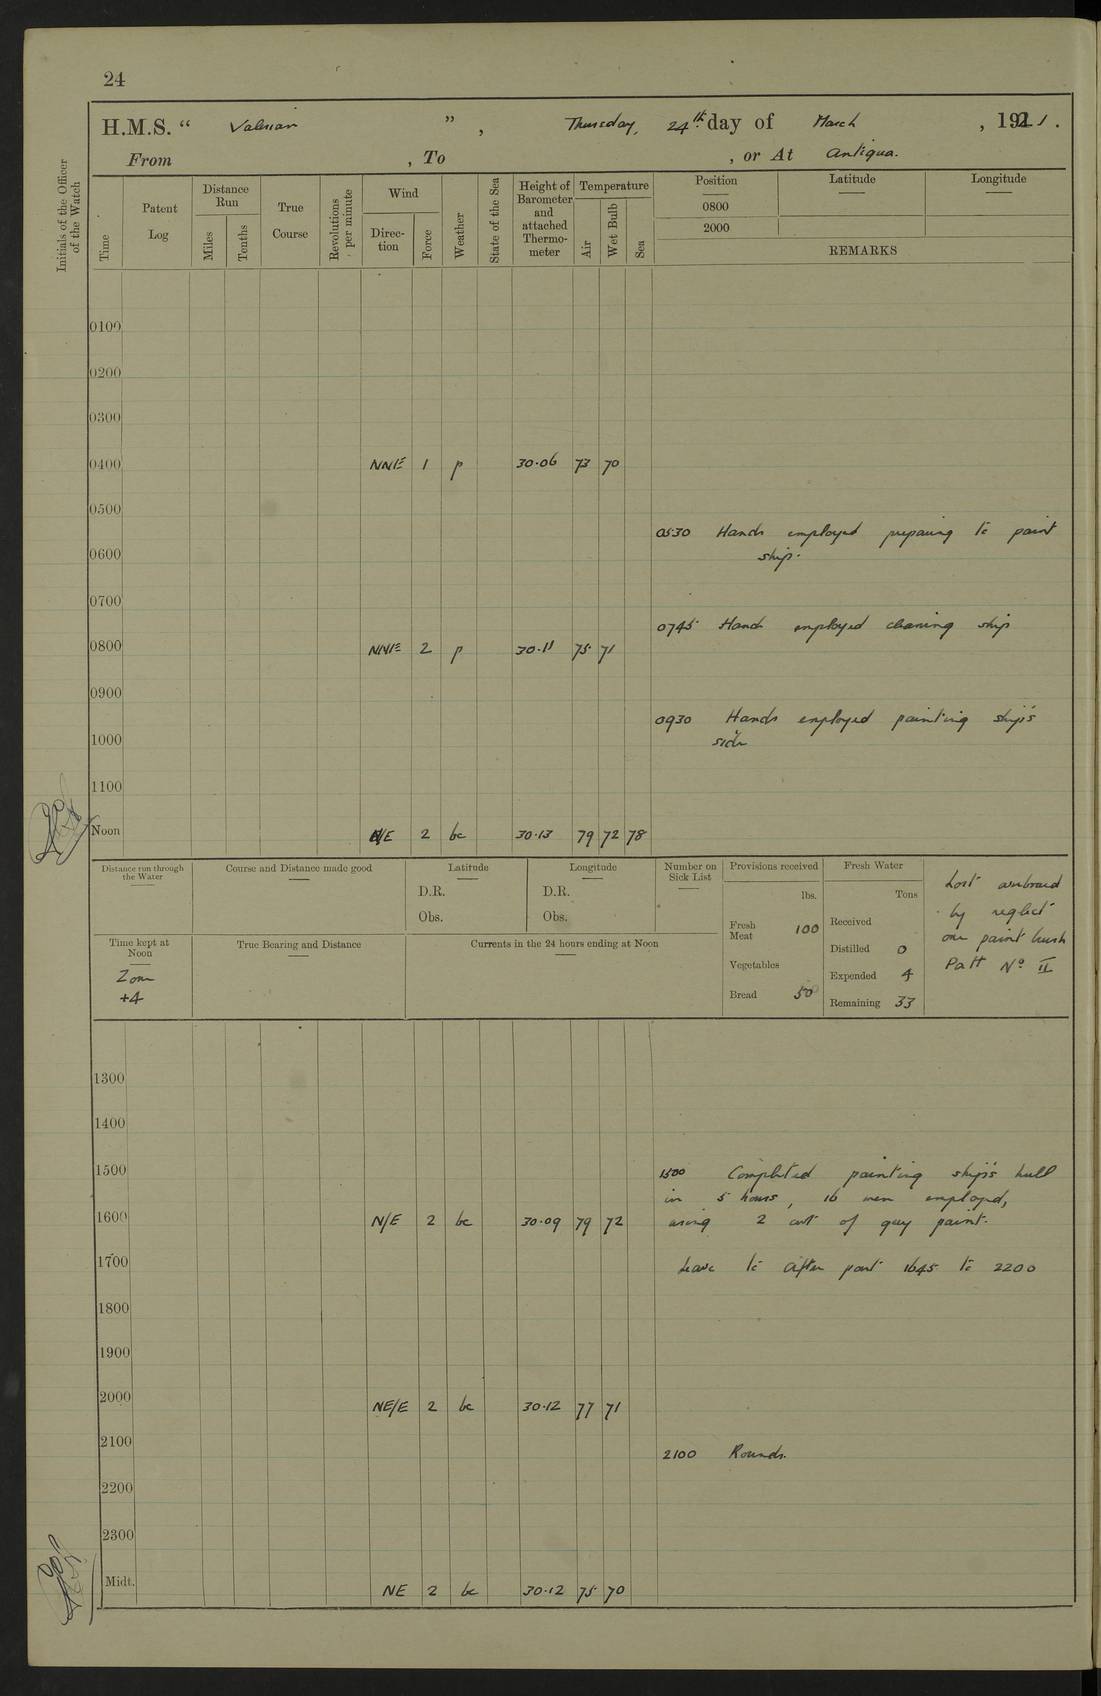 24
H.M.S. “ Valerian ” , Thursday, 24th. day of March , 1921 .
From , To , or At Antigua.
Initials of the Officer of the Watch
Time
Patent Log
Distance Run
Miles
Tenths
True Course
Revolutions per minute
Wind
Direction
Force
Weather
State of the Sea
Height of Barometer and attached Thermometer
Temperature
Air
Wet Bulb
Sea
Position Latitude Longitude
0800
2000
REMARKS
0100
0200
0300
0400 NNE 1 p 30.06 73 70
0500
0530 Hands employed preparing to paint
0600 ship.
0700
0745 Hands employed cleaning ship
0800 NNE 2 p 30.11 75 71
0900
0930 Hands employed painting ship's
1000 side
1100
Noon N/E 2 bc 30.13 79 72 78
Distance run through the Water
Course and Distance made good
Latitude
D.R.
Obs.
Longitude
D.R.
Obs.
Number on Sick List
Provisions received
lbs.
Fresh Meat 100
Vegetables
Bread 50
Fresh Water
Tons
Received
Distilled 0
Expended 4
Remaining 33
Lost overboard
by neglect
one paint brush
Patt No II
Time kept at Noon
Zone
+4
True Bearing and Distance
Currents in the 24 hours ending at Noon
1300
1400
1500 1500 Completed painting ship's hull
in 5 hours, 16 men employed,
1600 N/E 2 bc 30.09 79 72 using 2 cwt of grey paint.
1700 Leave to after part 1645 to 2200
1800
1900
2000 NE/E 2 bc 30.12 77 71
2100
2100 Rounds.
2200
2300
Midt. NE 2 bc 30.12 75 70